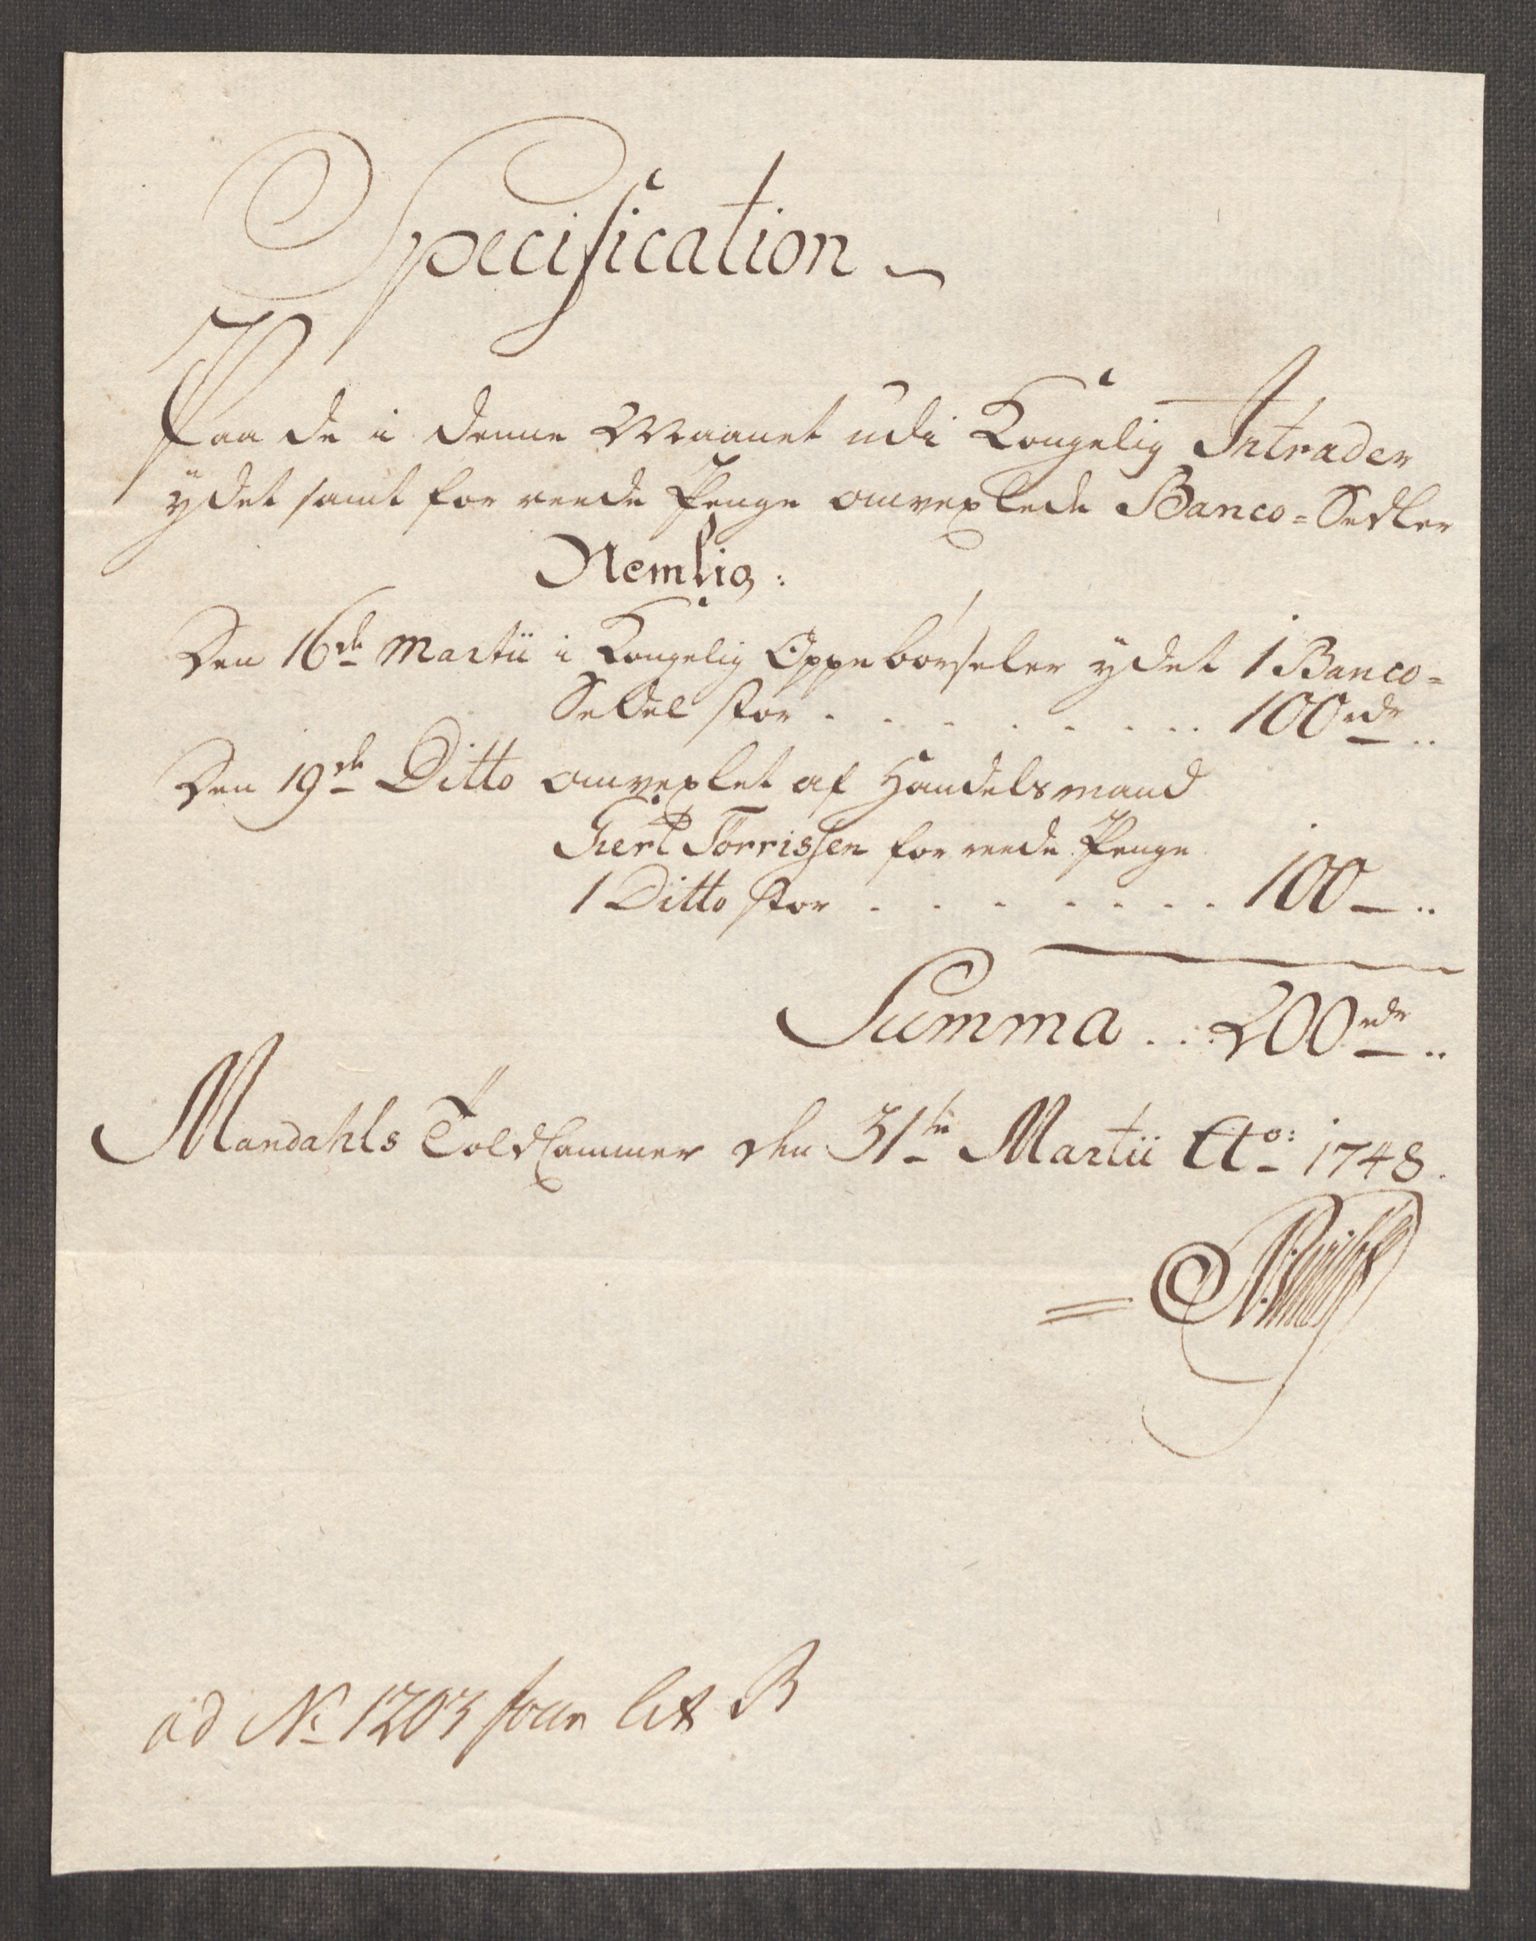 Specification
Paa de i denne Maanet udi Kongelig Intrader
ydet samt for reede Penge omvexlede Banco=Sedler
Nemlig:
Den 16de Martii i Kongelig Oppebørseler ydet 1 Banco=
Sedel stor . . . . . . . . 100 rdr ..
Den 19de Ditto omvexlet af Handelsmand
Giert Torrissen for reede Penge
1 Ditto stor . . . . . . . . 100 — ..
Summa . . . 200 rdr ..
Mandahls Told Cammer den 31te Martii Ao: 1748.
ad No 1203 Lit B